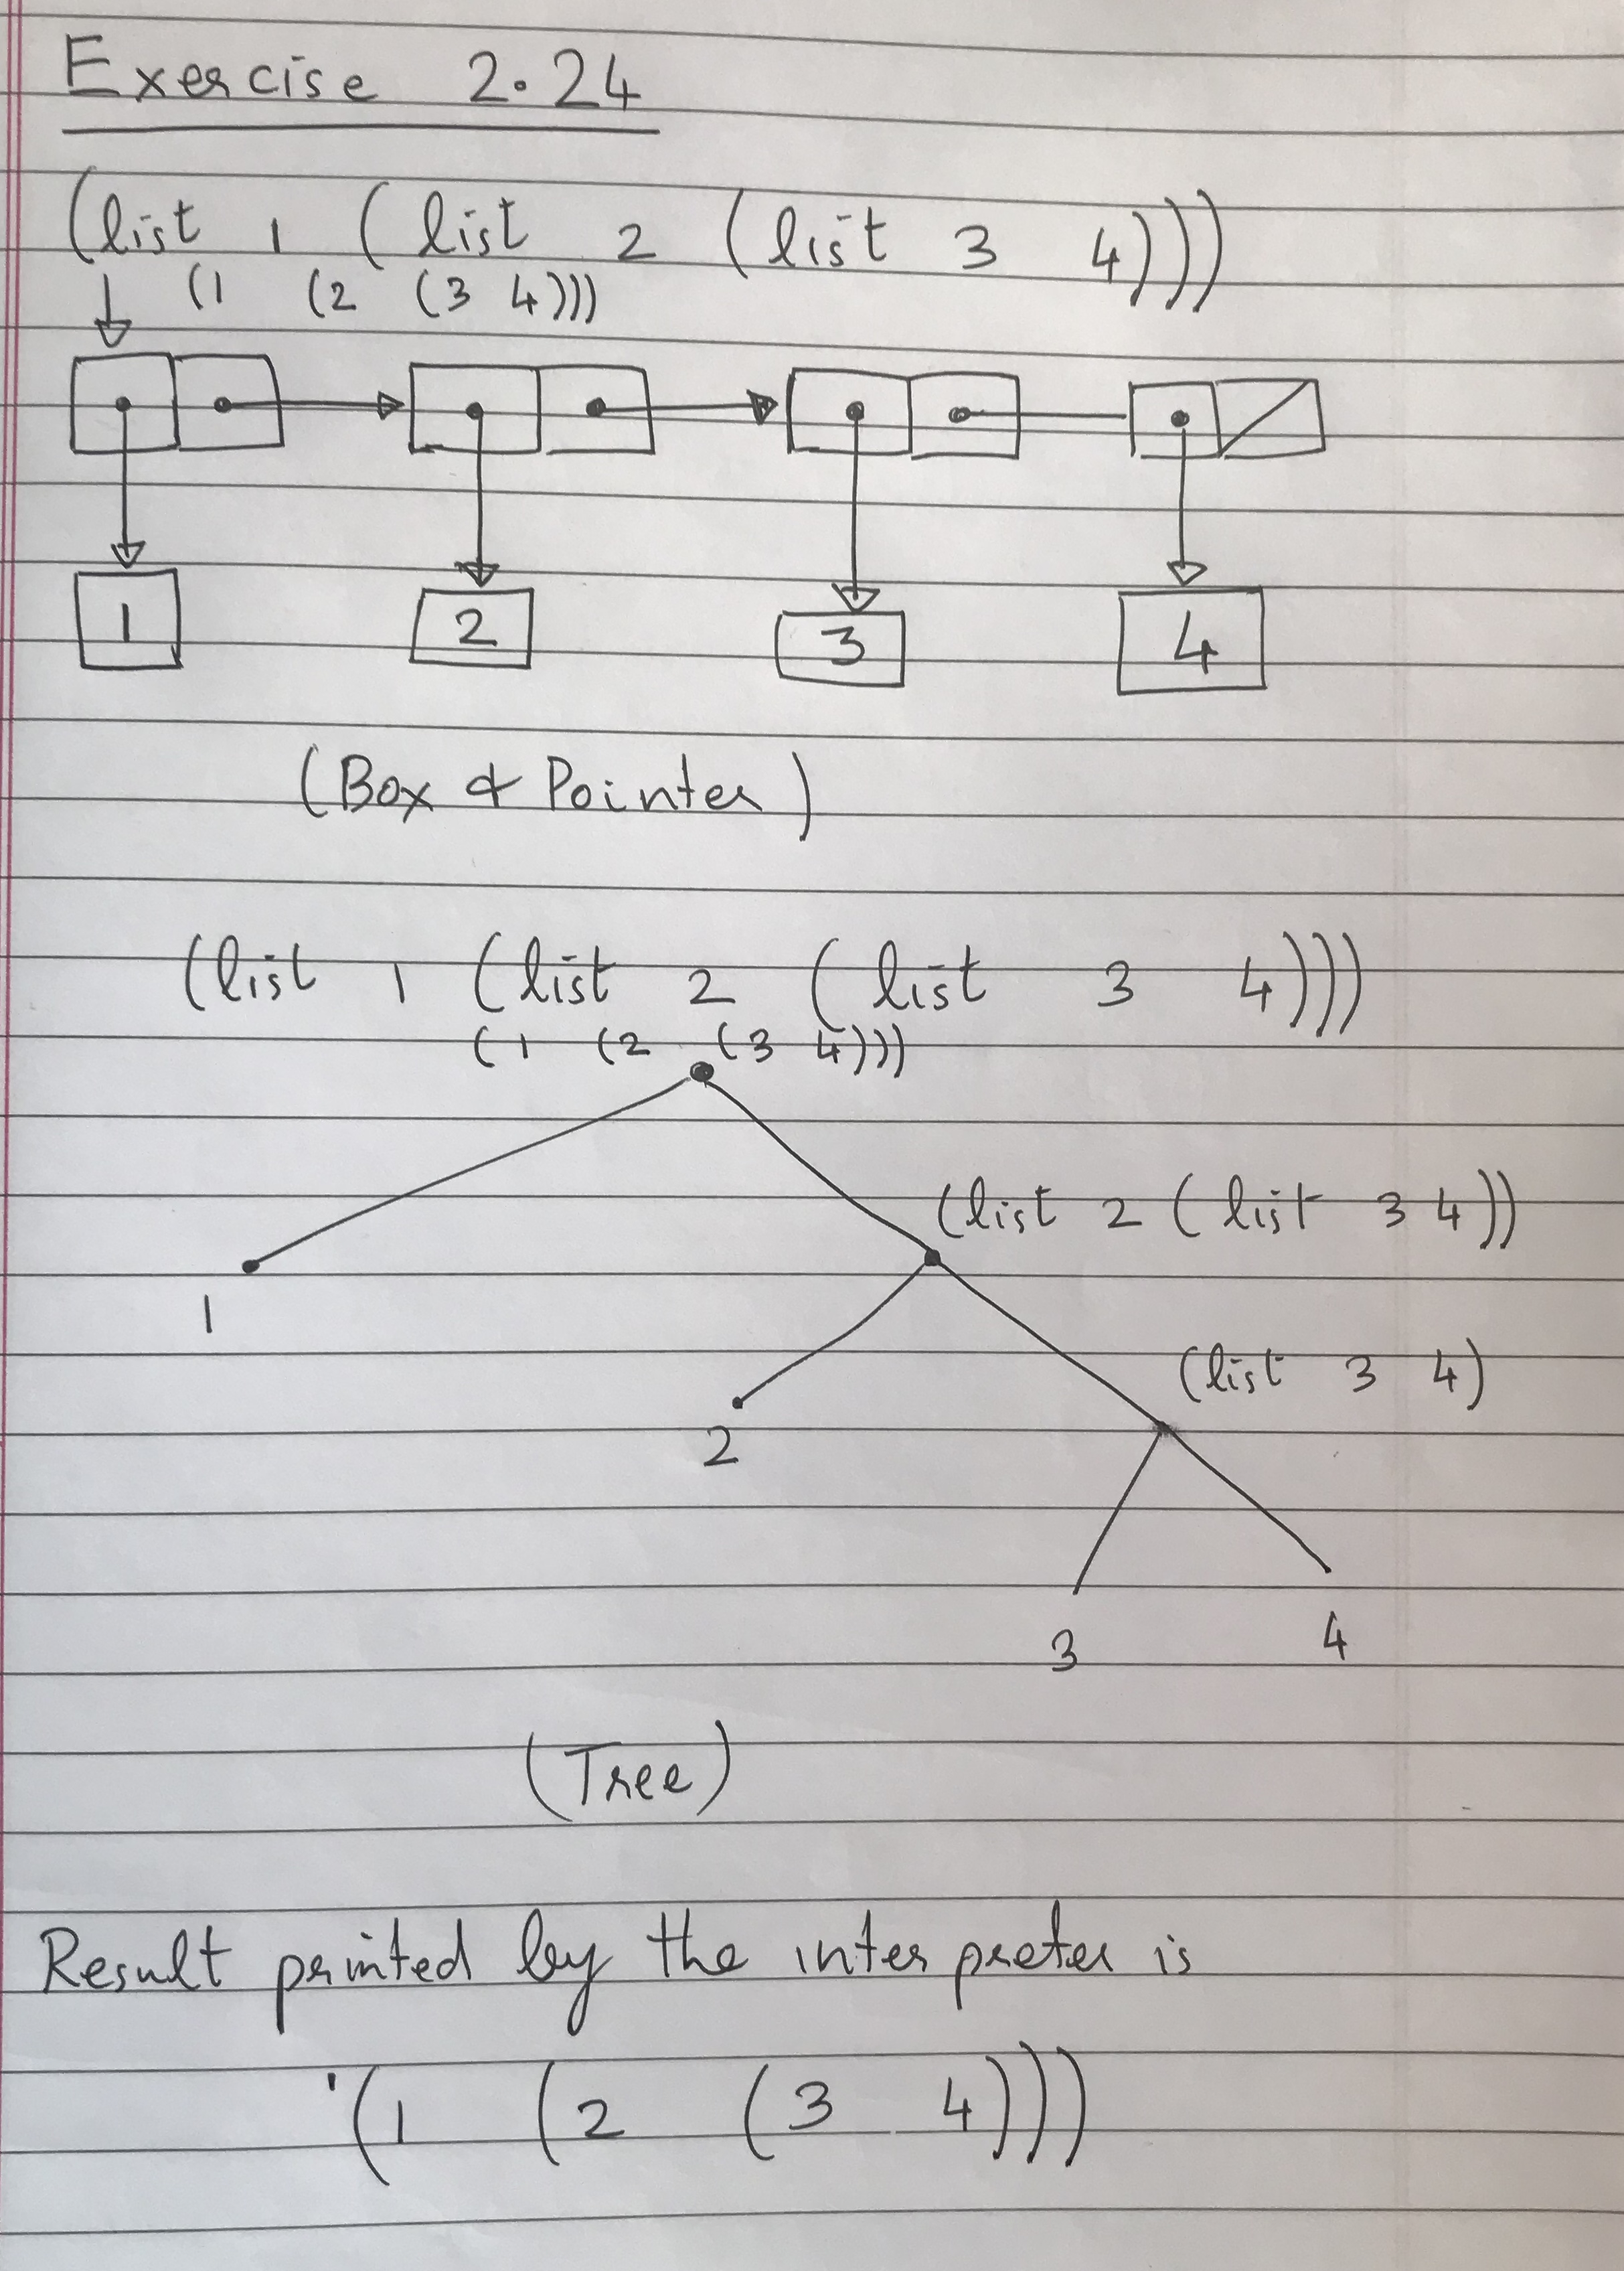 Exercise 2.24
(list 1 (list 2 (list 3 4)))
(1 (2 (3 4)))
1 2 3 4
(Box & Pointer)
(list 1 (list 2 (list 3 4)))
(1 (2 (3 4)))
(list 2 (list 3 4))
1
(list 3 4)
2
3 4
(Tree)
Result printed by the interpreter is
'(1 (2 (3 4)))